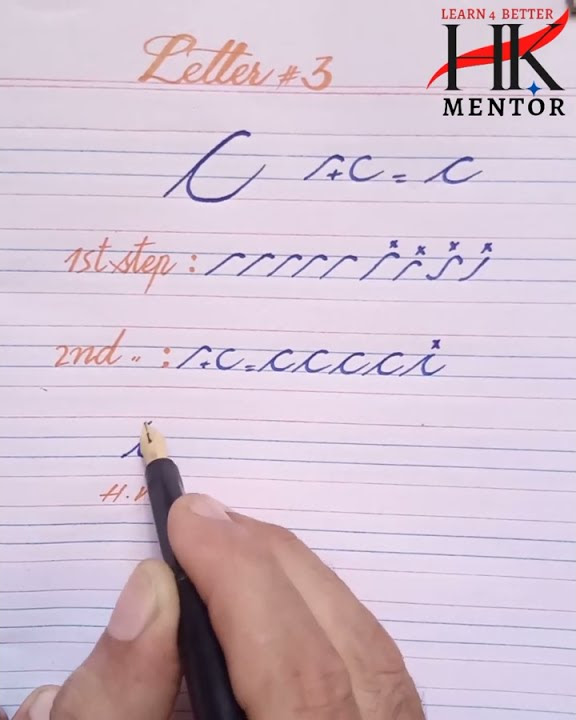 LEARN 4 BETTER
HK
MENTOR
Letter # 3
C + C = c
1st step :
2nd " : + C = c c c c i
H.